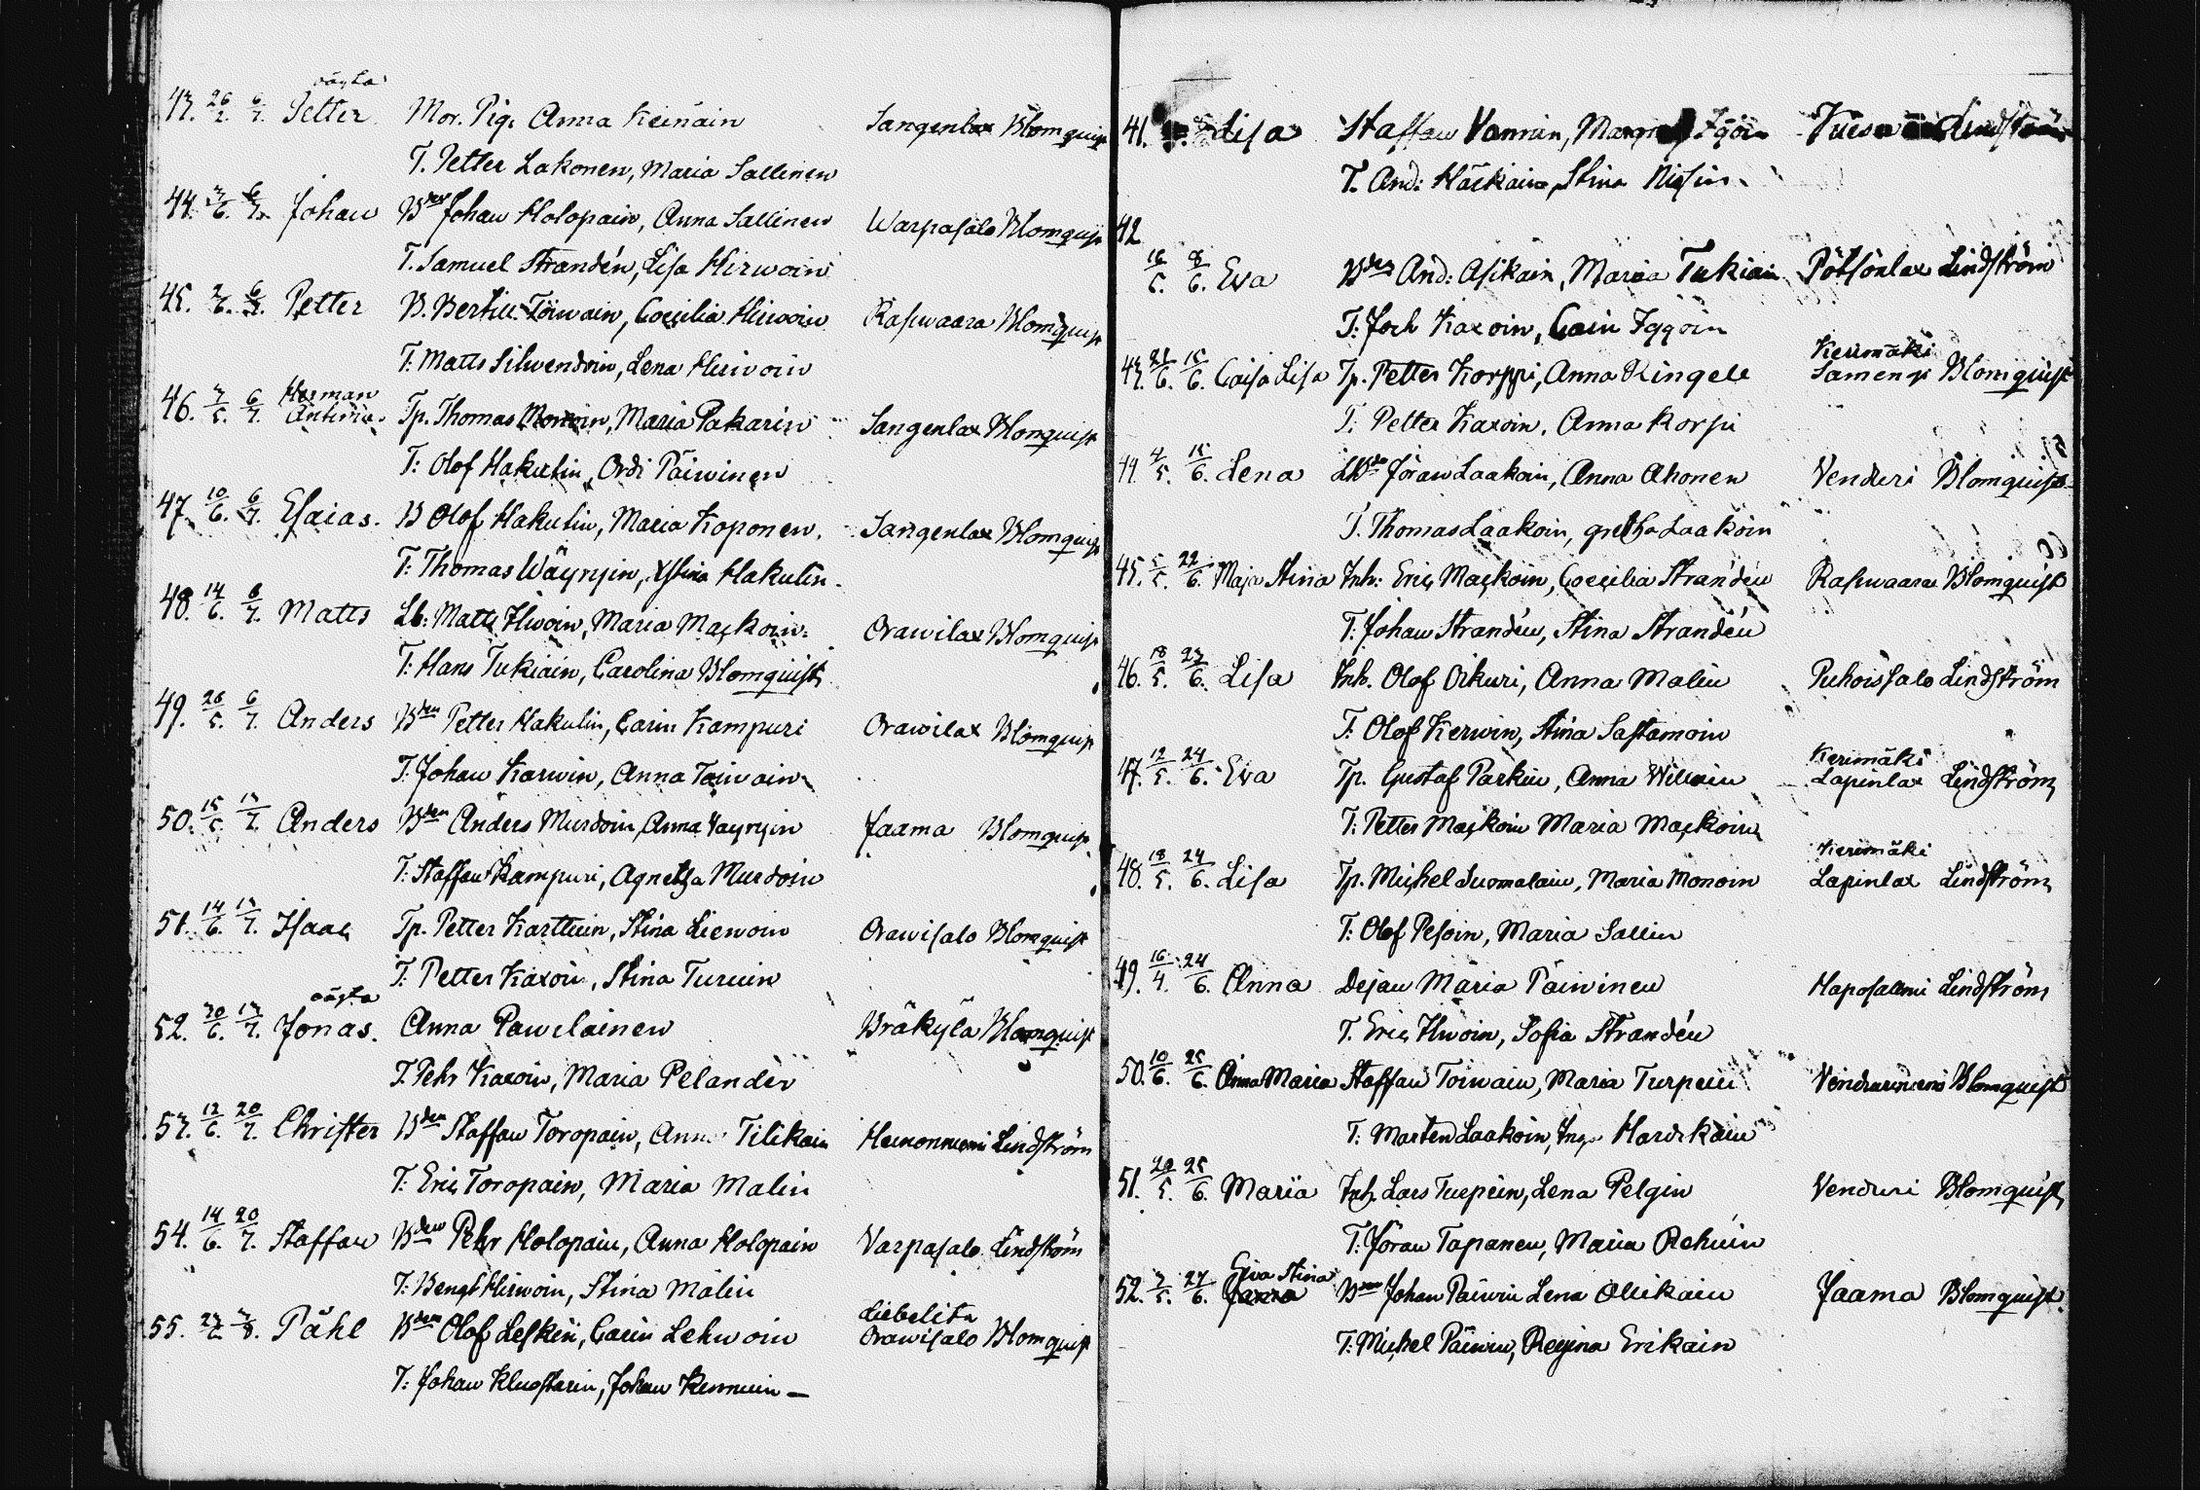 oägta
43. 26/2. 6/7. Petter. Mor. Pig. Anna Keinäin Sangenlax Blomquist
T. Petter Lakonen, Maria Sallinen
44. 3/6. 6/7. Johan Bden Johan Holopain, Anna Sallinen Warpasalo Blomquist
T. Samuel Strandén, Lisa Hirwoin
45. 2/6. 6/7. Petter B. Bertill Toiwain, Coecilia Hirwoin Raswaara Blomquist
T: Matts Silwendoin, Lena Hirwoin
Herman
46. 3/5. 6/7. Antinia. Tp. Thomas Monoin, Maria Pakarin Sangenlax Blomquist
T: Olof Hakulin, Ordi Päiwinen
47. 10/6. 6/7. Esaias. B Olof Hakulin, Maria Koponen. Sangenlax Blomquist
T: Thomas Wäyryin, Stina Hakulin.
48. 14/6. 6/7. Matts Lb: Matts Ihwoin, Maria Mackoin. Orawilax Blomquist
T: Hans Tukiain, Carolina Blomquist
49. 26/5. 6/7. Anders Bden Petter Hakulin, Carin Kampuri Orawilax Blomquist
T: Johan Karwin, Anna Toiwain
50. 15/5. 13/7. Anders Bden Anders Murdoin, Anna Vayryin Jaama Blomquist
T: Staffan Kampuri, Agnetha Murdoin
51. 14/6. 13/7. Isaac Tp. Petter Karttuin, Stina Liewoin Orawisalo Blomquist
T: Petter Kaxoin, Stina Turuin
oägta
52. 30/6. 13/7. Jonas. Anna Pawelainen Bräkylä Blomquist
T. Pehr Kaxoin, Maria Pelander
53. 12/6. 20/7. Christer Bden Staffan Toropain, Anna Tilikain Hemonniemi Lindström
T: Eric Toropain, Maria Malin
54. 14/6. 20/7. Staffan Bden Pehr Holopain, Anna Holopain Varpasalo Lindström
T: Bengt Hirwoin, Stina Malin
Liebelits
55. 3/8. Påhl Bden Olof Leskin, Carin Lehwoin Orawisalo Blomquist
T: Johan Kluostarin, Johan
41. Lisa Staffan Vannin, Iggöin Lindström
T. And: Häikäin, Stina
42
16/5. 8/6. Eva Bden And: Asikain, Maria Tukiain Pötsönlax Lindström
T: Joch Kaxoin, Carin Iggöin
Kerimäki
43. 21/6. 15/6. Caisa Lisa Tp. Petter Korppi, Anna Ringell Samengi Blomquist
T: Petter Kaxoin, Anna Korpi
44. 4/5. 15/6. Lena Göran Laakoin, Anna Ahonen Venduri Blomquist
T. Thomas Laakoin, gretha Laakoin
45. 5/5. 22/6. Maja Stina Inh: Eric Mackoin, Coecilia Strandén Raswaara Blomquist
T: Johan Strandén, Stina Strandén
46. 18/5. 23/6. Lisa Inh. Olof Oikuri, Anna Malin Puhoissalo Lindström
T. Olof Kerwin, Stina Sastamoin
Kerimäki
47. 12/5. 24/6. Eva Tp. Gustaf Parkin, Anna Lapinlax Lindström
T: Petter Mackoin Maria Mackoin
Kerimäki
48. 18/5. 24/6. Lisa Tp. Michel Suomalain, Maria Monoin Lapinlax Lindström
T: Olof Pesoin, Maria Sallin
49. 16/4. 24/6. Anna Dejan Maria Päiwinen Haposalmi Lindström
T. Eric Ihwoin, Sofia Strandén
50. 10/6. 25/6. Anna Maria Staffan Toiwain, Maria Turpein Blomquist
T: Marten Laakoin,
51. 20/5. 25/6. Maria Inh. Lars Turpein, Lena Pelgin Venduri Blomquist
T: Göran Tapanen, Maria Rehuin
Eva Stina
52. 3/5. 27/6. Bden Johan Päiwin Lena Ollikain Jaama Blomquist.
T: Michel Päiwin, Regina Erikain